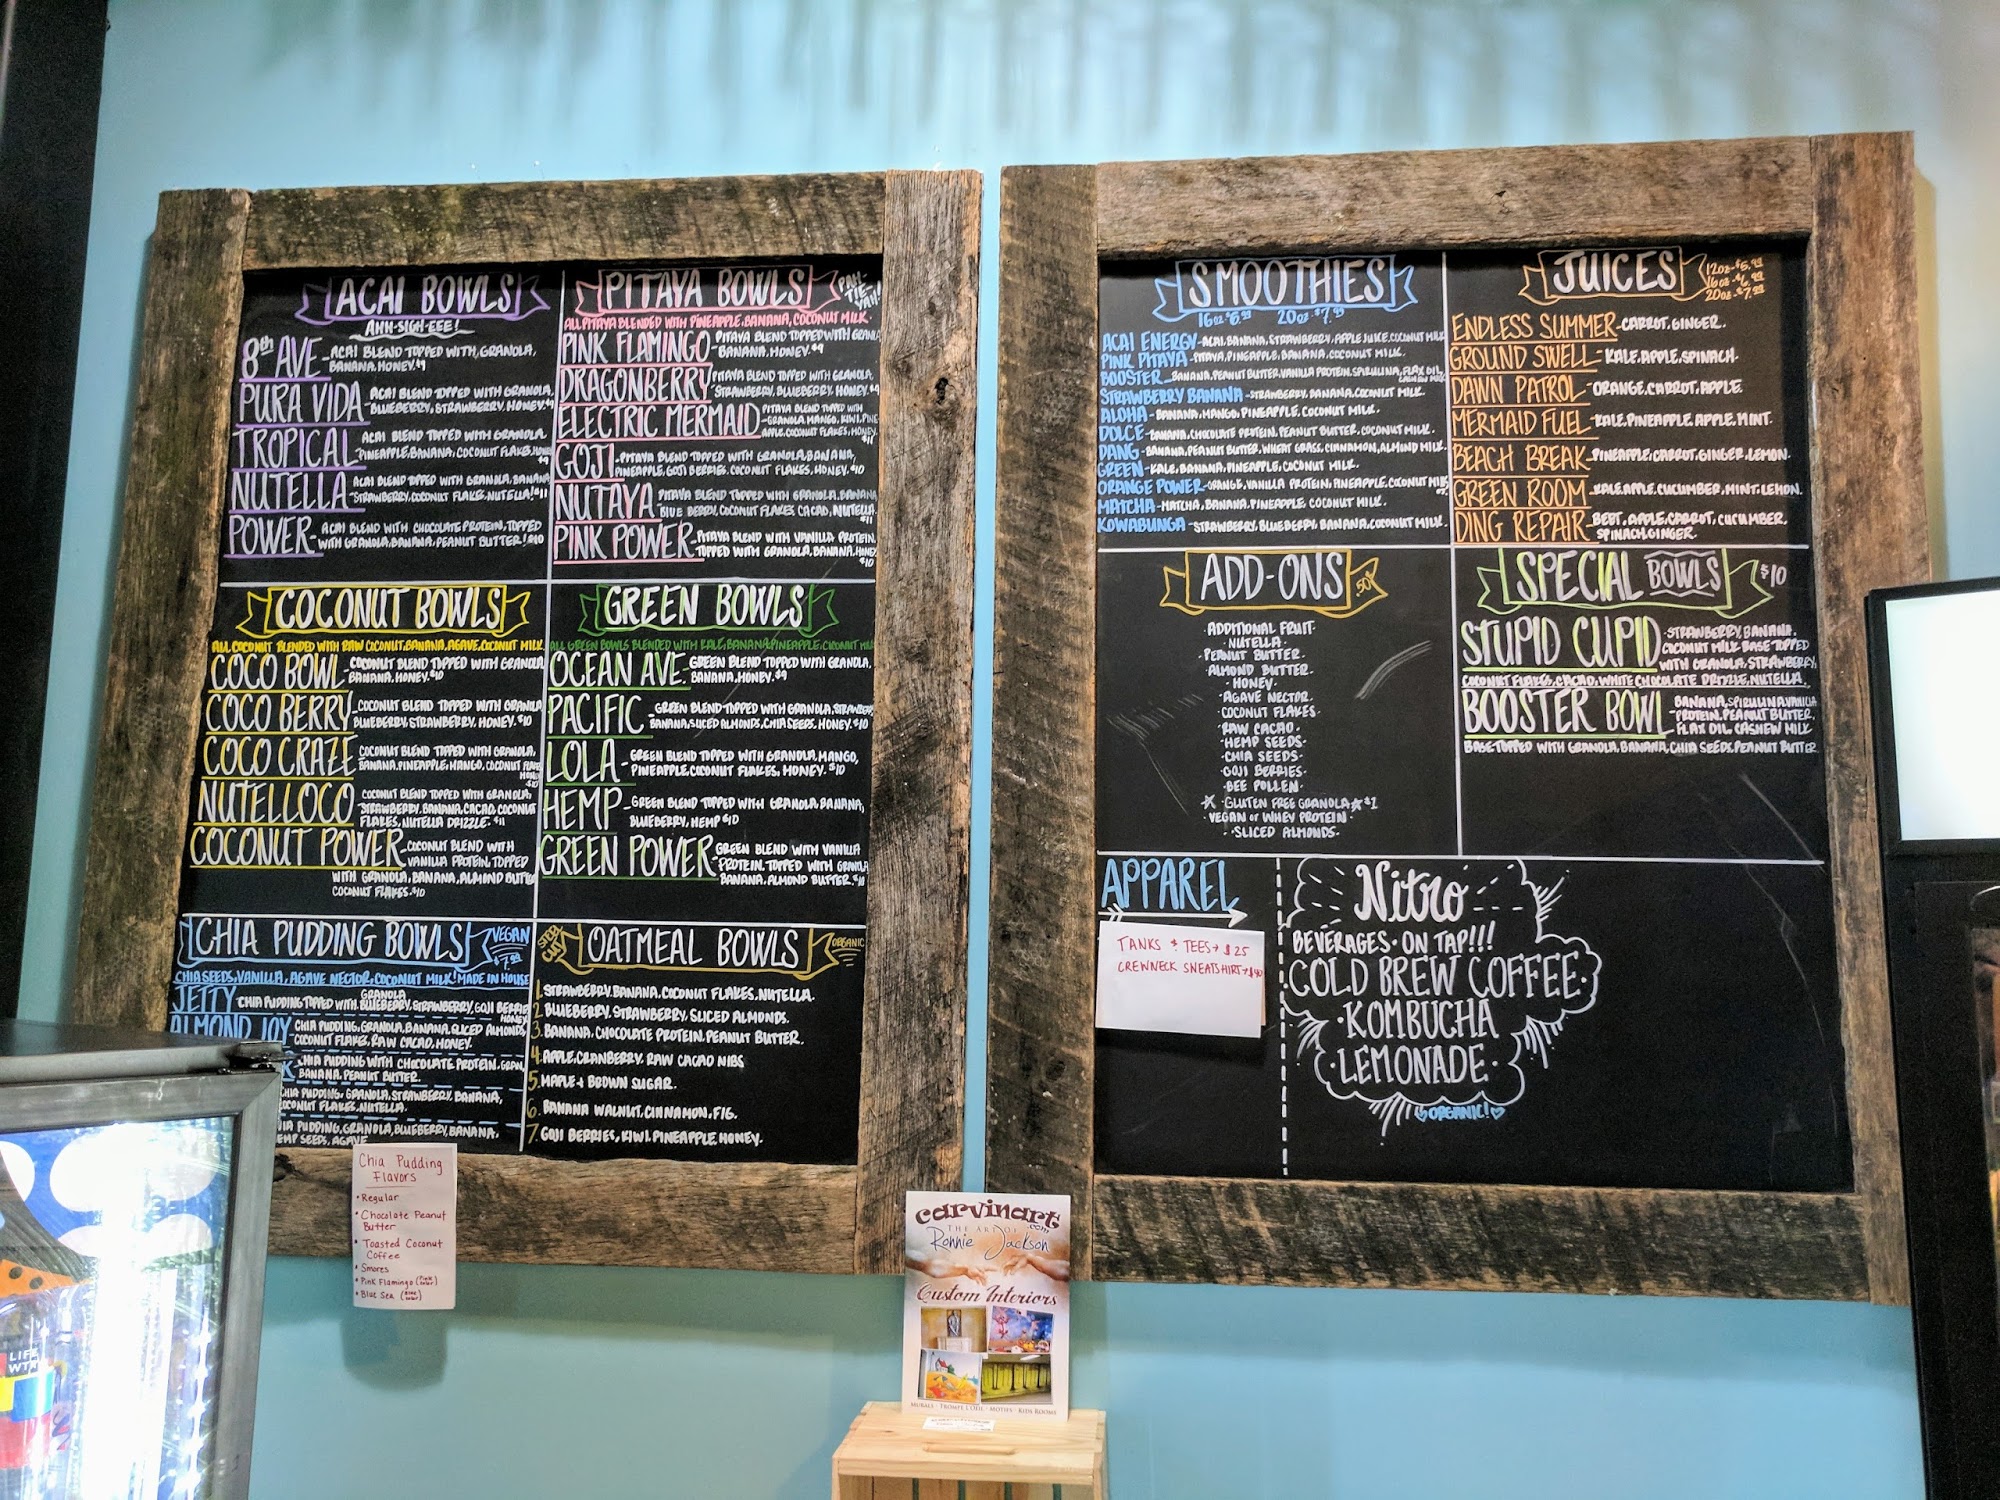 ACAI BOWLS
AHH-SIGH-EEE!
8th AVE - ACAI BLEND TOPPED WITH GRANOLA,
BANANA, HONEY. $9
PURA VIDA - ACAI BLEND TOPPED WITH GRANOLA,
BLUEBERRY, STRAWBERRY, HONEY. $9
TROPICAL - ACAI BLEND TOPPED WITH GRANOLA,
PINEAPPLE, BANANA, COCONUT FLAKES, HONEY
$9
NUTELLA - ACAI BLEND TOPPED WITH GRANOLA, BANANA
STRAWBERRY, COCONUT FLAKES, NUTELLA! $11
POWER - ACAI BLEND WITH CHOCOLATE PROTEIN, TOPPED
WITH GRANOLA, BANANA, PEANUT BUTTER! $10
PITAYA BOWLS
PAH-
TIE-
YAH!
ALL PITAYA BLENDED WITH PINEAPPLE, BANANA, COCONUT MILK.
PINK FLAMINGO - PITAYA BLEND TOPPED WITH GRANOLA
BANANA, HONEY. $9
DRAGONBERRY - PITAYA BLEND TOPPED WITH GRANOLA,
STRAWBERRY, BLUEBERRY, HONEY. $9
ELECTRIC MERMAID - PITAYA BLEND TOPPED WITH
GRANOLA, MANGO, KIWI, PINE-
APPLE, COCONUT FLAKES, HONEY.
$11
GOJI - PITAYA BLEND TOPPED WITH GRANOLA, BANANA,
PINEAPPLE, GOJI BERRIES, COCONUT FLAKES, HONEY. $10
NUTAYA - PITAYA BLEND TOPPED WITH GRANOLA, BANANA
BLUE BERRY, COCONUT FLAKES, CACAO, NUTELLA.
$11
PINK POWER - PITAYA BLEND WITH VANILLA PROTEIN,
TOPPED WITH GRANOLA, BANANA, HONEY
$10
COCONUT BOWLS
ALL COCONUT BLENDED WITH RAW COCONUT, BANANA, AGAVE, COCONUT MILK.
COCO BOWL - COCONUT BLEND TOPPED WITH GRANOLA
BANANA, HONEY. $10
COCO BERRY - COCONUT BLEND TOPPED WITH GRANOLA
BLUEBERRY, STRAWBERRY, HONEY. $10
COCO CRAZE - COCONUT BLEND TOPPED WITH GRANOLA,
BANANA, PINEAPPLE, MANGO, COCONUT FLAKES
HONEY
NUTELLOCO - COCONUT BLEND TOPPED WITH GRANOLA,
STRAWBERRY, BANANA, CACAO, COCONUT
FLAKES, NUTELLA DRIZZLE. $11
COCONUT POWER - COCONUT BLEND WITH
VANILLA PROTEIN, TOPPED
WITH GRANOLA, BANANA, ALMOND BUTTER
COCONUT FLAKES. $10
GREEN BOWLS
ALL GREEN BOWLS BLENDED WITH KALE, BANANA, PINEAPPLE, COCONUT MILK
OCEAN AVE. - GREEN BLEND TOPPED WITH GRANOLA,
BANANA, HONEY. $9
PACIFIC - GREEN BLEND TOPPED WITH GRANOLA, STRAWBERRY
BANANA, SLICED ALMONDS, CHIA SEEDS, HONEY. $10
LOLA - GREEN BLEND TOPPED WITH GRANOLA, MANGO,
PINEAPPLE, COCONUT FLAKES, HONEY. $10
HEMP - GREEN BLEND TOPPED WITH GRANOLA, BANANA,
BLUEBERRY, HEMP $10
GREEN POWER - GREEN BLEND WITH VANILLA
PROTEIN. TOPPED WITH GRANOLA
BANANA, ALMOND BUTTER. $10
CHIA PUDDING BOWLS
VEGAN
$7.99
CHIA SEEDS, VANILLA, AGAVE NECTOR, COCONUT MILK! MADE IN HOUSE
JETTY - CHIA PUDDING TOPPED WITH GRANOLA BLUEBERRY, STRAWBERRY, GOJI BERRIES
HONEY
ALMOND JOY - CHIA PUDDING, GRANOLA, BANANA, SLICED ALMONDS,
COCONUT FLAKES, RAW CACAO, HONEY.
CHIA PUDDING WITH CHOCOLATE PROTEIN, GRAN
BANANA, PEANUT BUTTER.
CHIA PUDDING, GRANOLA, STRAWBERRY, BANANA,
COCONUT FLAKES, NUTELLA.
PUDDING, GRANOLA, BLUEBERRY, BANANA,
HEMP SEEDS, AGAVE
STEEL
CUT
OATMEAL BOWLS
ORGANIC
1. STRAWBERRY, BANANA, COCONUT FLAKES, NUTELLA.
2. BLUEBERRY, STRAWBERRY, SLICED ALMONDS.
3. BANANA, CHOCOLATE PROTEIN, PEANUT BUTTER.
4. APPLE, CRANBERRY, RAW CACAO NIBS
5. MAPLE + BROWN SUGAR.
6. BANANA WALNUT, CINNAMON, FIG.
7. GOJI BERRIES, KIWI, PINEAPPLE, HONEY.
Chia Pudding
Flavors
• Regular
• Chocolate Peanut
Butter
• Toasted Coconut
Coffee
• Smores
• Pink Flamingo (Pink color)
• Blue Sea (Blue color)
SMOOTHIES
16oz $6.99 20oz $7.99
ACAI ENERGY - ACAI, BANANA, STRAWBERRY, APPLE JUICE, COCONUT MILK
PINK PITAYA - PITAYA, PINEAPPLE, BANANA, COCONUT MILK.
BOOSTER - BANANA, PEANUT BUTTER, VANILLA PROTEIN, SPIRULINA, FLAX OIL,
CASHEW MILK
STRAWBERRY BANANA - STRAWBERRY, BANANA, COCONUT MILK.
ALOHA - BANANA, MANGO, PINEAPPLE, COCONUT MILK.
DOLCE - BANANA, CHOCOLATE PROTEIN, PEANUT BUTTER, COCONUT MILK.
DANG - BANANA, PEANUT BUTTER, WHEAT GRASS, CINNAMON, ALMOND MILK.
GREEN - KALE, BANANA, PINEAPPLE, COCONUT MILK.
ORANGE POWER - ORANGE, VANILLA PROTEIN, PINEAPPLE, COCONUT MILK
MATCHA - MATCHA, BANANA, PINEAPPLE, COCONUT MILK.
KOWABUNGA - STRAWBERRY, BLUEBERRY, BANANA, COCONUT MILK.
JUICES
12oz - $5.99
16oz - $6.99
20oz - $7.99
ENDLESS SUMMER - CARROT, GINGER.
GROUND SWELL - KALE, APPLE, SPINACH.
DAWN PATROL - ORANGE, CARROT, APPLE.
MERMAID FUEL - KALE, PINEAPPLE, APPLE, MINT.
BEACH BREAK - PINEAPPLE, CARROT, GINGER, LEMON.
GREEN ROOM - KALE, APPLE, CUCUMBER, MINT, LEMON.
DING REPAIR - BEET, APPLE, CARROT, CUCUMBER,
SPINACH, GINGER.
ADD-ONS
.50¢
·ADDITIONAL FRUIT·
·NUTELLA·
·PEANUT BUTTER·
·ALMOND BUTTER·
·HONEY·
·AGAVE NECTOR·
·COCONUT FLAKES·
·RAW CACAO·
·HEMP SEEDS·
·CHIA SEEDS·
·GOJI BERRIES·
·BEE POLLEN·
☆ GLUTEN FREE GRANOLA ☆ $1
·VEGAN or WHEY PROTEIN·
·SLICED ALMONDS·
SPECIAL BOWLS
$10
STUPID CUPID - STRAWBERRY, BANANA,
COCONUT MILK BASE TOPPED
WITH GRANOLA, STRAWBERRY,
COCONUT FLAKES, CACAO, WHITE CHOCOLATE DRIZZLE, NUTELLA.
BOOSTER BOWL - BANANA, SPIRULINA, VANILLA
PROTEIN, PEANUT BUTTER,
FLAX OIL, CASHEW MILK
BASE TOPPED WITH GRANOLA, BANANA, CHIA SEEDS, PEANUT BUTTER
APPAREL
TANKS + TEES → $25
CREWNECK SWEATSHIRT → $40
Nitro
BEVERAGES · ON TAP!!!
COLD BREW COFFEE·
·KOMBUCHA
·LEMONADE·
♡ORGANIC!♡
carvinart
.com
THE ART OF
Ronnie Jackson
Custom Interiors
MURALS · TROMPE L'OEIL · MOTIFS · KIDS ROOMS
LIFE
WTR